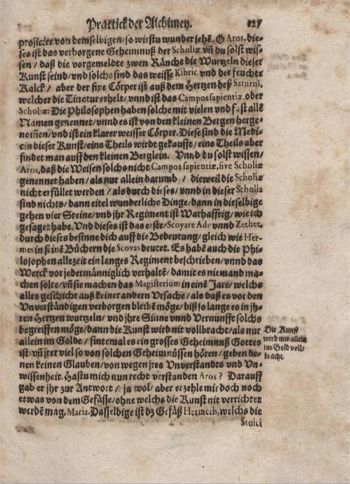 Practick der Alchimey. 127
projiciere von demselbigen / so wirstu wunder sehē. O Aros, die-
ses ist das verborgene Geheimnuß der Scholiæ vñ du solt wis-
sen / daß die vorgemeldte zwen Räuche die Wurtzeln dieser
Kunst seind / vnd solche sind das weisse Kibric vnd der feuchte
Kalck / aber der fixe Cörper ist auß dem Hertzen deß Saturni,
welcher die Tinctur erhelt / vnnd ist das Campos sapientiæ oder
Scholæ: Die Philosophen haben solche mit vielen vnd fast allē
Namen genennet / vnnd es ist von den kleinen Bergen herge-
nom̃en / vnd ist ein klarer weisser Cörper. Diese sind die Medi-
cin dieser Kunst / eins Theils wirdt gekaufft / eins Theils aber
findet man auff den kleinen Berglein. Vnnd du solst wissen /
Aros, daß die Weisen solchs nicht Campos sapientiæ, sive Scholiæ
genennet haben / als nur allein darumb / dieweil die Scholia
nicht erfüllet werden / als durch dieses / vnnd in dieser Scholia
sind nichts / dann eitel wunderliche Dinge / dann in dieselbige
gehen vier Steine / vnd ihr Regiment ist Warhafftig / wie ich
gesaget habe. Vnd dieses ist das erste / Scoyare Ade vnnd Zethet,
durch dieses besinne dich auff die Bedeutung / gleich wie Her-
mes in seinē Büchern die Scoyas deutet. Es habē auch die Phi-
losophen allezeit ein langes Regiment beschrieben / vnnd das
Werck vor jederm̃anniglich verhaltē / damit es niemand ma-
chen solte / vñ sie machen das Magisterium in eim̃ Jare / welchs
alles geschicht auß keiner andern Vrsache / als daß es vor den
Vnverständigen verborgen bleibe mög / biß so lange es in jh-
ren Hertzen wurtzeln / vnd ihre Sinne vnnd Vernunfft solchs
begreiffen möge / dann die Kunst wird nit vollbracht / als nur
allein im Golde / sintemal es ein grosses Geheimnuß Gottes
ist / vñ jrer viel so von solchen Geheimnüssen hören / geben die-
nen keinen Glauben / von wegen jres Unverstandts vnd Un-
wissenheit. Hastu mich nun recht verstanden Aros? Darauff
gab er ihr zur Antwort / ja wol / aber erzehle mir doch noch
etwas von dem Gefässe / ohne welchs die Kunst nit verrichtet
werdē mag. Maria. Dasselbige ist dz Gefäß Hermetis, welchs die
Stoici
Die Kunst
wird nur allein
im Gold voll-
bracht.